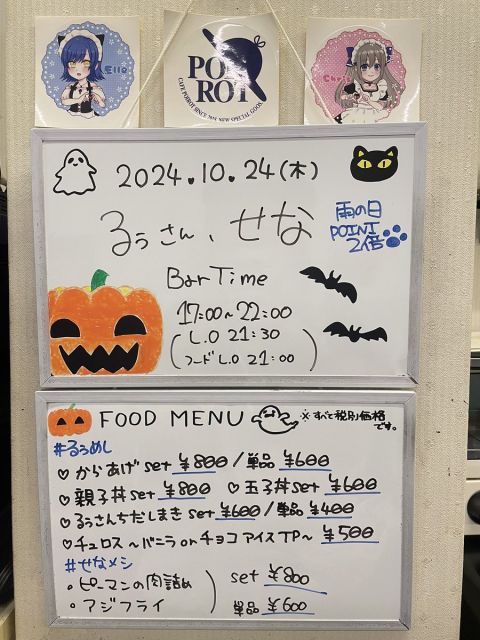 Ello
POIROT
CAFE POIROT SINCE 2014 NEW SPECIAL GOODS
Chris
2024.10.24(木)
るぅさん、せな
雨の日
POINT
2倍
Bar Time
17:00~22:00
(L.O 21:30
フードL.O 21:00)
FOOD MENU
※すべて税別価格
です。
#るぅめし
♡からあげset ¥800/単品 ¥600
♡親子丼set ¥800 ♡玉子丼set ¥600
♡るぅさんちだしまきset ¥600/単品 ¥400
♡チュロス~バニラorチョコアイスTP~ ¥500
#せなメシ
・ピーマンの肉詰め
・アジフライ
set ¥800
単品 ¥600